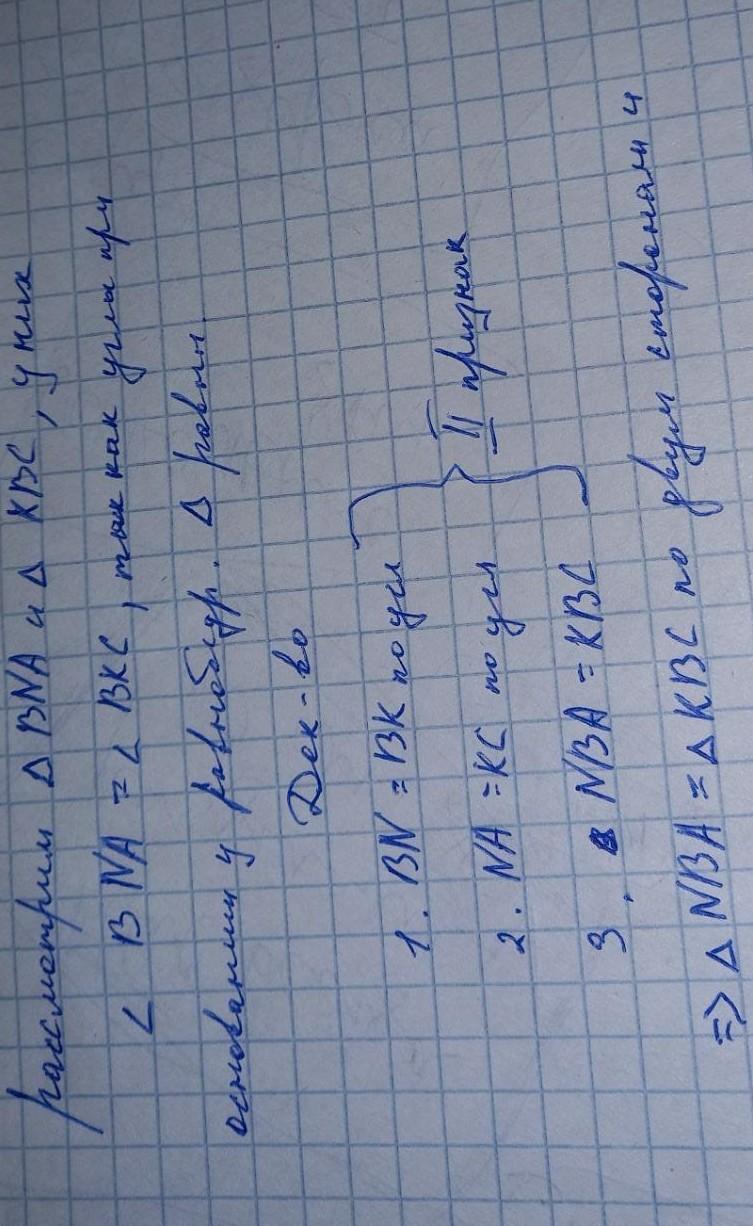 рассмотрим Δ BNA и Δ KBC, у них
∠ BNA = ∠ BKC, так как углы при
основании у равнобедр. Δ равны.
Док-во
1. BN = BK по усл
2. NA = KC по усл
3. NBA = KBC
II признак
=> Δ NBA = Δ KBC по двум сторонам и